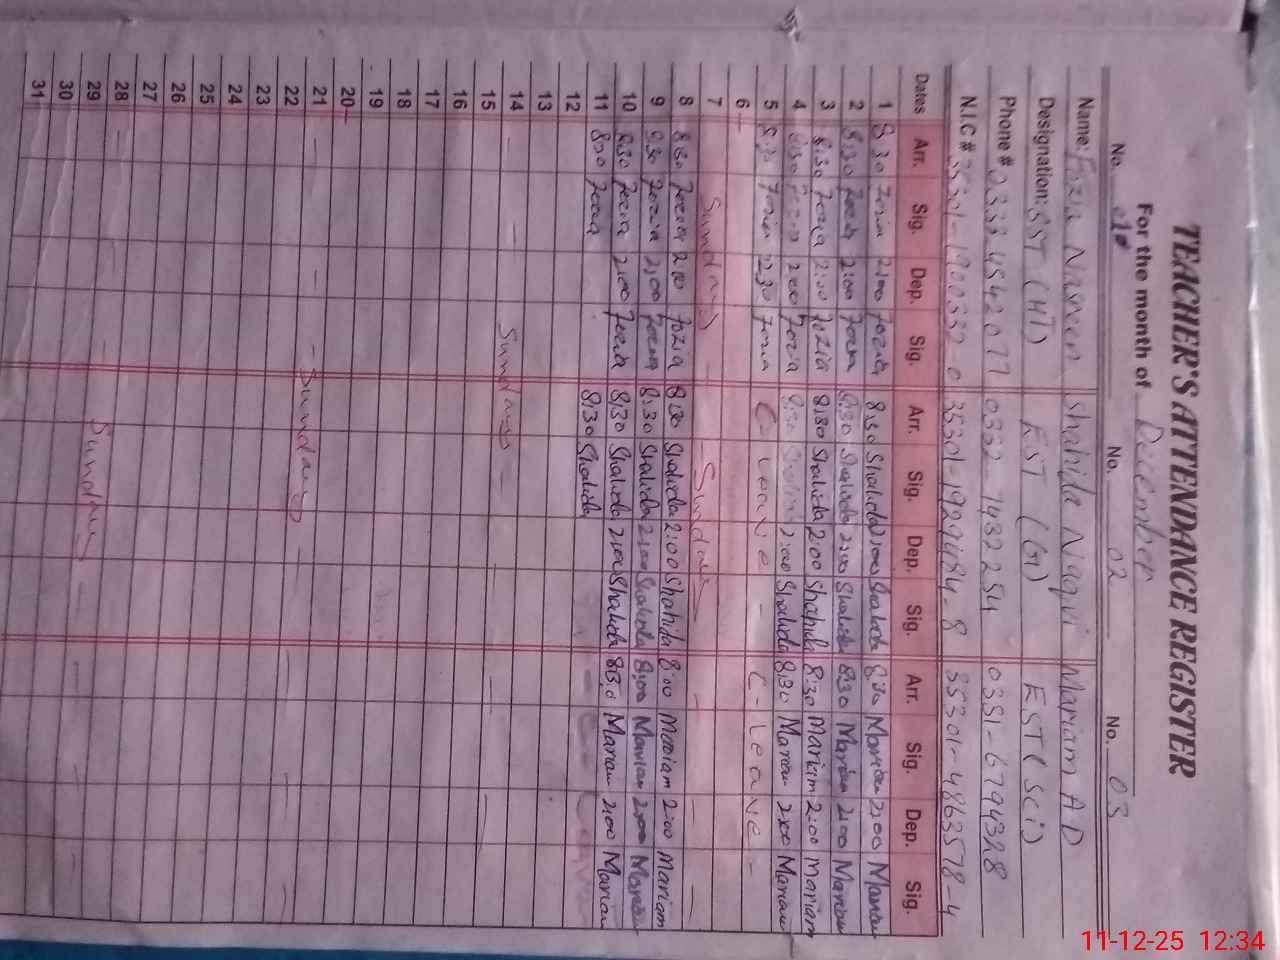 TEACHER'S ATTENDANCE REGISTER
For the month of December
No. 01 No. 02 No. 03
Name: Fozia Nasreen Shahida Naqvi Mariam A D
Designation: SST (HT) EST (G) EST (Sci)
Phone # 0333 4542077 0332-7432254 0331-6794328
N.I.C # 35301-1900332-0 35301-1929484-8 35301-4863578-4
Dates Arr. Sig. Dep. Sig. Arr. Sig. Dep. Sig. Arr. Sig. Dep. Sig.
1 8:30 Fozia 2:00 Fozia 8:30 Shahida 2:00 Shahida 8:30 Mariam 2:00 Mariam
2 8:30 Fozia 2:00 Fozia 8:30 Shahida 2:00 Shahida 8:30 Mariam 2:00 Mariam
3 8:30 Fozia 2:00 Fozia 8:30 Shahida 2:00 Shahida 8:30 Mariam 2:00 Mariam
4 8:30 Fozia 2:00 Fozia 8:30 Shahida 2:00 Shahida 8:30 Mariam 2:00 Mariam
5 8:30 Fozia 12:30 Fozia C leave - C - leave -
6
7 Sunday - Sunday
8 8:30 Fozia 2:00 Fozia 8:30 Shahida 2:00 Shahida 8:00 Mariam 2:00 Mariam
9 8:30 Fozia 2:00 Fozia 8:30 Shahida 2:00 Shahida 8:00 Mariam 2:00 Mariam
10 8:30 Fozia 2:00 Fozia 8:30 Shahida 2:00 Shahida 8:30 Mariam 2:00 Mariam
11 8:30 Fozia 8:30 Shahida
12
13
14 - Sunday -
15
16
17
18
19
20
21 - Sunday -
22
23
24
25
26
27
28 - Sunday -
29
30
31
11-12-25 12:34